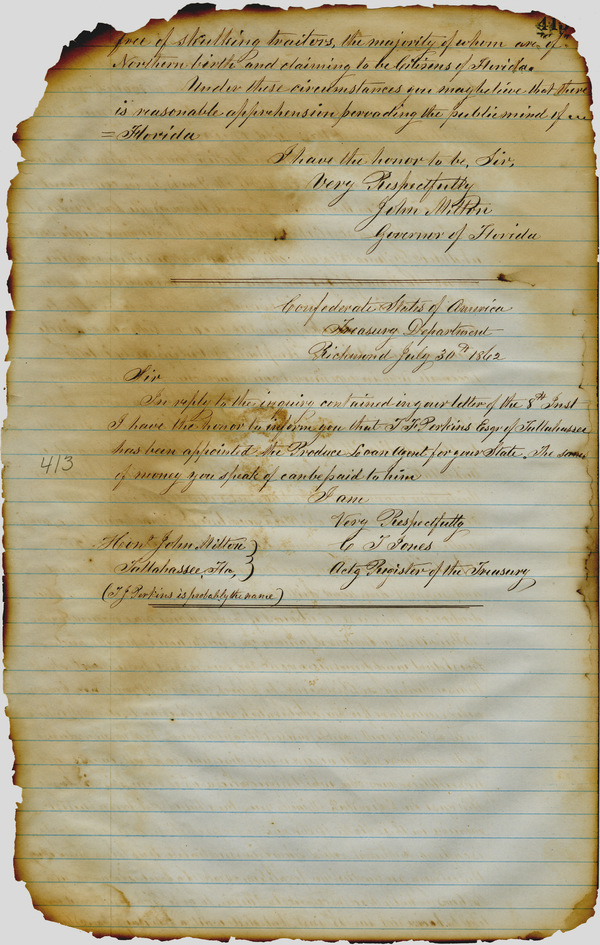 free of skulking traitors, the majority of whom are of
Northern birth and claiming to be Citizens of Florida.
Under these circumstances you may believe that there
is reasonable apprehension pervading the public mind of
= Florida
I have the honor to be, Sir,
Very Respectfully
John Milton
Governor of Florida
Confederate States of America
Treasury Department
Richmond July 30th 1862
Sir
In reply to the inquiry contained in your letter of the 8th Inst
I have the honor to inform you that T. F. Perkins Esqr of Tallahassee
has been appointed the Produce Loan Agent for your State. The sums
413
of money you speak of can be paid to him
I am
Very Respectfully
Honl John Milton } C T Jones
Tallahassee, Fla, } Actg Register of the Treasury
(T J Perkins is probably the name)